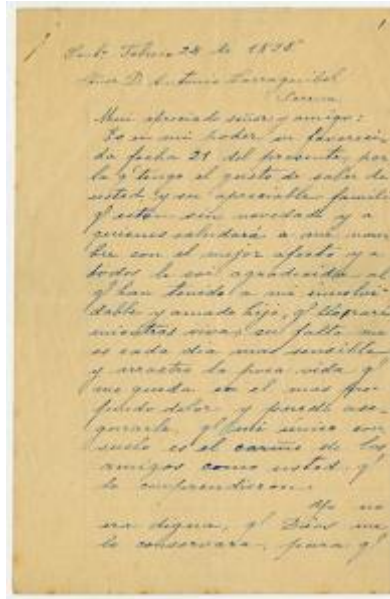 Febrero 28 de 1898
Señor D. Antonio
Serena
Mui apreciado señor y amigo:
Es en mi poder su favoreci-
da fecha 21 del presente, por
la q' tengo el gusto de saber de
usted y su apreciable familia
q' estén sin novedad y a
quienes saludará a mi nom-
bre con el mejor afecto y a
todos le soi agradecida al
q' han tenido a mi inolvi-
dable y amado hijo, q' lloraré
mientras viva; su falta me
es cada dia mas sensible
y arrastro la poca vida q'
me queda en el mas pro-
fundo dolor y puedo ase-
gurarle, q' mi único con-
suelo es el cariño de los
amigos como usted q'
lo comprendieron.
Yo no
era digna, q' Dios me
lo conservara, para q'